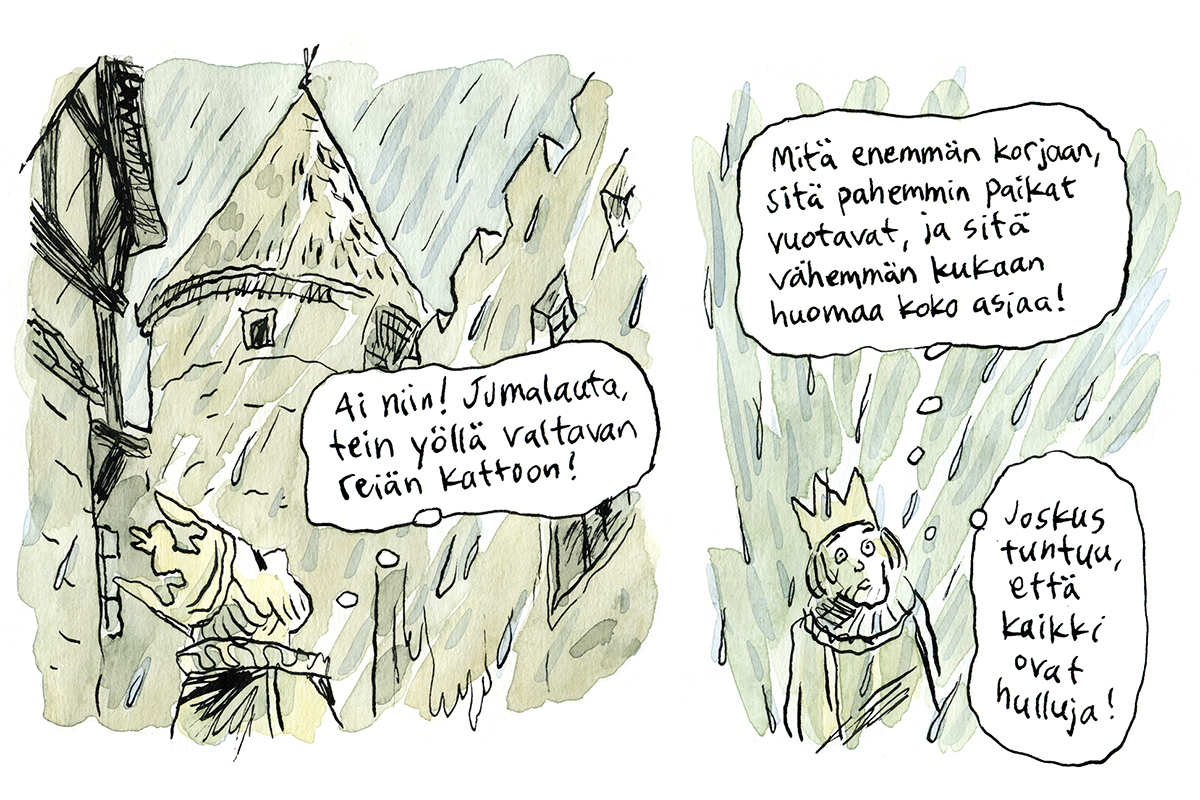 Ai niin! Jumalauta,
tein yöllä valtavan
reiän kattoon!
Mitä enemmän korjaan,
sitä pahemmin paikat
vuotavat, ja sitä
vähemmän kukaan
huomaa koko asiaa!
Joskus
tuntuu,
että
kaikki
ovat
hulluja!